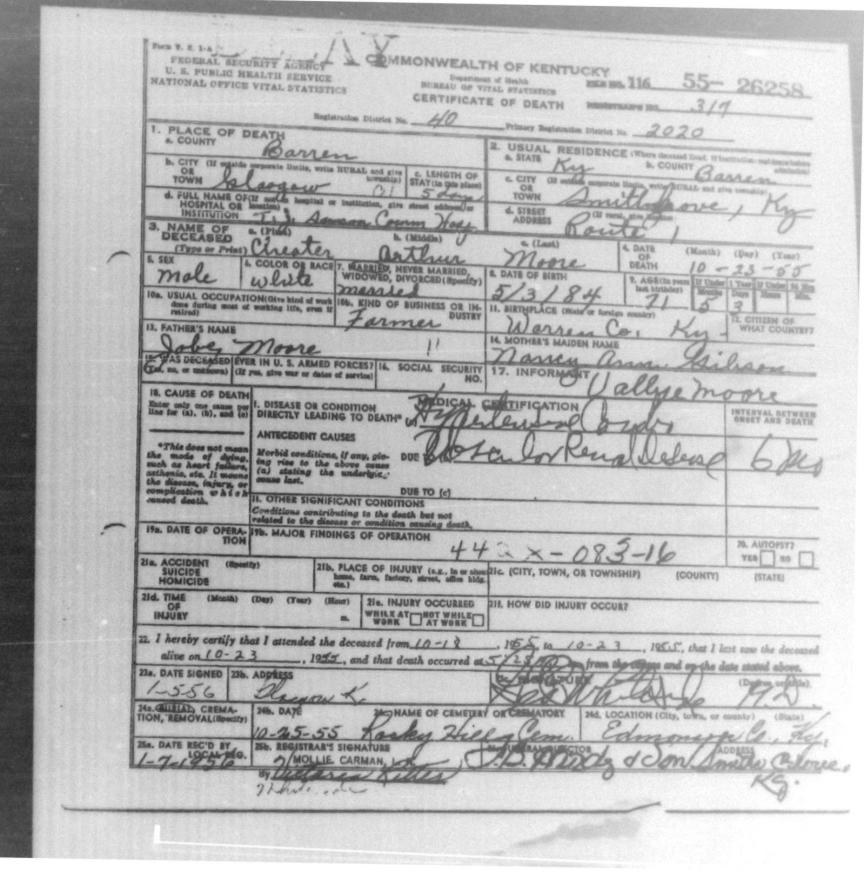 Form V. S. 1-A
FEDERAL SECURITY AGENCY
U. S. PUBLIC HEALTH SERVICE
NATIONAL OFFICE VITAL STATISTICS
COMMONWEALTH OF KENTUCKY
Department of Health
BUREAU OF VITAL STATISTICS
CERTIFICATE OF DEATH
FILE NO. 116 55- 26258
REGISTRAR'S NO. 317
Registration District No. 40 Primary Registration District No. 2020
1. PLACE OF DEATH
a. COUNTY Barren
2. USUAL RESIDENCE (Where deceased lived. If institution: residence before admission)
a. STATE Ky b. COUNTY Barren
b. CITY (If outside corporate limits, write RURAL and give township) OR TOWN Glasgow
c. LENGTH OF STAY (in this place) 5 days
c. CITY (If outside corporate limits, write RURAL and give township) OR TOWN Smiths Grove, Ky
d. FULL NAME OF (If not in hospital or institution, give street address or location) HOSPITAL OR INSTITUTION T. J. Samson Comm Hosp
d. STREET ADDRESS (If rural, give location) Route 1
3. NAME OF DECEASED (Type or Print)
a. (First) b. (Middle) c. (Last)
Chester Arthur Moore
4. DATE OF DEATH (Month) (Day) (Year) 10-23-55
5. SEX male
6. COLOR OR RACE white
7. MARRIED, NEVER MARRIED, WIDOWED, DIVORCED (Specify) married
8. DATE OF BIRTH 5/3/84
9. AGE (In years last birthday) 71 If Under 1 Year Months 5 Days If Under 24 Hrs. Hours Min.
10a. USUAL OCCUPATION (Give kind of work done during most of working life, even if retired)
10b. KIND OF BUSINESS OR INDUSTRY
Farmer
11. BIRTHPLACE (State or foreign country) Warren Co, Ky
12. CITIZEN OF WHAT COUNTRY?
13. FATHER'S NAME
Moore
14. MOTHER'S MAIDEN NAME
Nancy Ann Gibson
15. WAS DECEASED EVER IN U. S. ARMED FORCES?
(Yes, no, or unknown) (If yes, give war or dates of service)
16. SOCIAL SECURITY NO.
17. INFORMANT Vallye Moore
18. CAUSE OF DEATH
Enter only one cause per line for (a), (b), and (c)
MEDICAL CERTIFICATION
INTERVAL BETWEEN ONSET AND DEATH
I. DISEASE OR CONDITION DIRECTLY LEADING TO DEATH* (a) Hypertensive Cardio
ANTECEDENT CAUSES
Morbid conditions, if any, giving rise to the above cause (a) stating the underlying cause last.
DUE TO Vascular Renal Disease
DUE TO (c)
*This does not mean the mode of dying, such as heart failure, asthenia, etc. It means the disease, injury, or complication which caused death.
II. OTHER SIGNIFICANT CONDITIONS
Conditions contributing to the death but not related to the disease or condition causing death.
19a. DATE OF OPERATION
19b. MAJOR FINDINGS OF OPERATION
20. AUTOPSY?
YES NO
083-16
21a. ACCIDENT SUICIDE HOMICIDE (Specify)
21b. PLACE OF INJURY (e.g., in or about home, farm, factory, street, office bldg. etc.)
21c. (CITY, TOWN, OR TOWNSHIP) (COUNTY) (STATE)
21d. TIME OF INJURY (Month) (Day) (Year) (Hour) m.
21e. INJURY OCCURRED
WHILE AT WORK NOT WHILE AT WORK
21f. HOW DID INJURY OCCUR?
22. I hereby certify that I attended the deceased from 10-18, 1955, to 10-23, 1955, that I last saw the deceased
alive on 10-23, 1955, and that death occurred at from the causes and on the date stated above.
23a. DATE SIGNED 1-5-56
23b. ADDRESS Glasgow K.
SIGNATURE M.D.
24a. BURIAL, CREMATION, REMOVAL (Specify)
24b. DATE 10-25-55
24c. NAME OF CEMETERY OR CREMATORY Rocky Hill Cem.
24d. LOCATION (City, town, or county) (State) Edmonson Co., Ky.
25a. DATE REC'D BY LOCAL REG. 1-7-1956
25b. REGISTRAR'S SIGNATURE
MOLLIE CARMAN,
By
FUNERAL DIRECTOR ADDRESS
& Son Smiths Grove, Ky.